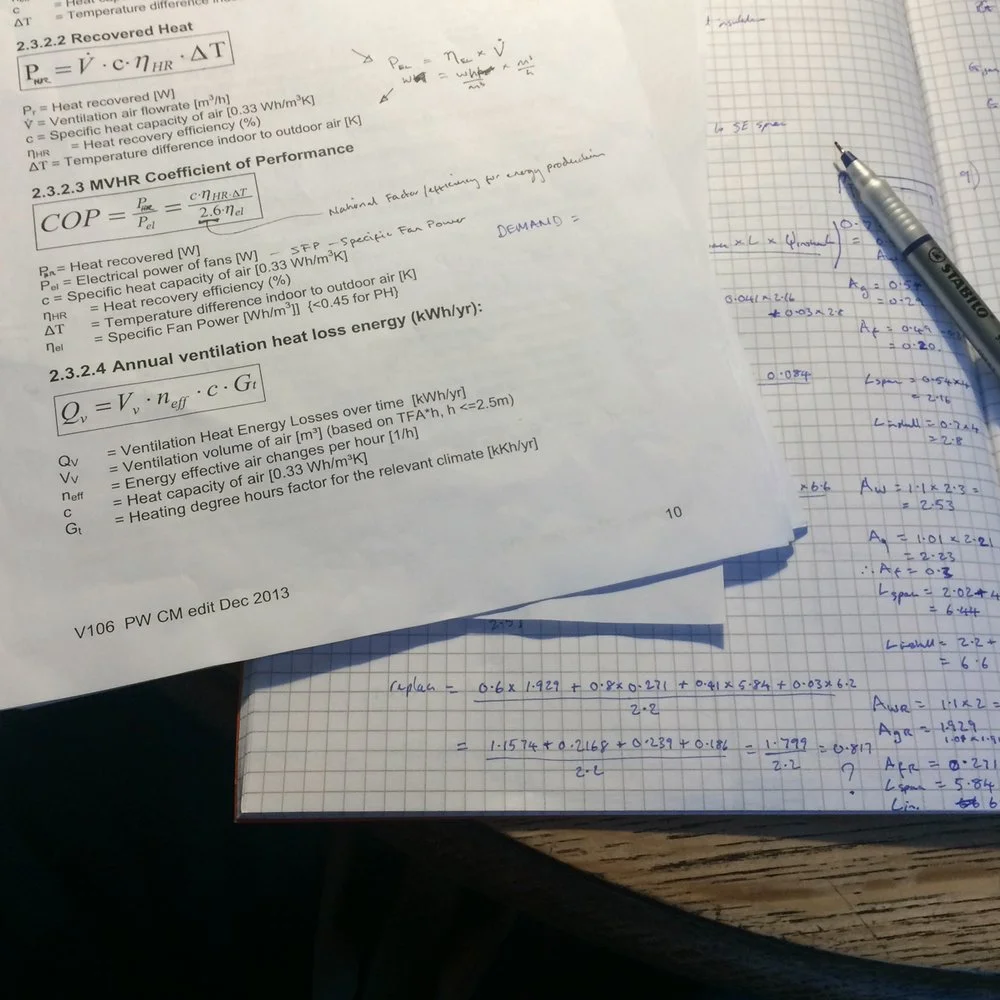 c
ΔT = Temperature difference
2.3.2.2 Recovered Heat
P_HR = V̇ · c · η_HR · ΔT
P_r = Heat recovered [W]
V̇ = Ventilation air flowrate [m³/h]
c = Specific heat capacity of air [0.33 Wh/m³K]
η_HR = Heat recovery efficiency (%)
ΔT = Temperature difference indoor to outdoor air [K]
P_EL = η_EL × V̇
2.3.2.3 MVHR Coefficient of Performance
COP = P_HR / P_el = c·η_HR·ΔT / 2.6·η_el
National Factor/efficiency for energy production
P_HR = Heat recovered [W]
P_el = Electrical power of fans [W] – SFP – Specific Fan Power
c = Specific heat capacity of air [0.33 Wh/m³K]
η_HR = Heat recovery efficiency (%)
ΔT = Temperature difference indoor to outdoor air [K]
η_el = Specific Fan Power [Wh/m³]] {<0.45 for PH}
DEMAND =
2.3.2.4 Annual ventilation heat loss energy (kWh/yr):
Q_v = V_v · n_eff · c · G_t
Q_V = Ventilation Heat Energy Losses over time [kWh/yr]
V_V = Ventilation volume of air [m³] (based on TFA*h, h <=2.5m)
n_eff = Energy effective air changes per hour [1/h]
c = Heat capacity of air [0.33 Wh/m³K]
G_t = Heating degree hours factor for the relevant climate [kKh/yr]
10
V106 PW CM edit Dec 2013
STABILO
9)
0.041×2.16
+ 0.03×2.8
0.084
×6.6
Ag = 0.54
Af = 0.49
= 0.20
Lspan = 0.54×4
= 2.16
Linstall = 0.7×4
= 2.8
Aw = 1.1×2.3 =
= 2.53
Ag = 1.01×2.21
= 2.23
∴ Af = 0.3
Lspan = 2.02+4
= 6.44
Linstall = 2.2 +
= 6.6
replan = 0.6× 1.929 + 0.8×0.271 + 0.41×5.84 + 0.03×6.2 / 2.2
= 1.1574+0.2168+0.239+0.186 / 2.2 = 1.799 / 2.2 = 0.817
?
AWR = 1.1×2 =
AgR = 1.929
AfR = 0.271
Lspan = 5.84
Lin.